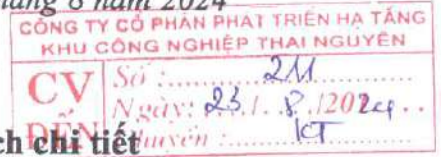 tháng 8 năm 2024
CÔNG TY CỔ PHẦN PHÁT TRIỂN HẠ TẦNG
KHU CÔNG NGHIỆP THÁI NGUYÊN
CV
ĐẾN
Số : 211
Ngày: 23 / 8 / 2024
Chuyển : KT
ch chi tiết